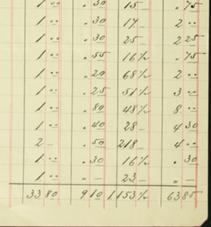 1 .. .30 15 - . 75
1 .. .30 17 - 2 ..
1 .. .30 25 2 25
1 .. .55 16½ . 75
1 .. .20 68½ 2 ..
1 .. .25 51½ 3 ..
1 .. .80 48½ 8 ..
1 .. .40 28 - 4 30
2 - .50 218 - 4 ..
1 .. .30 16½ . 30
1 .. 23 -
33 80 9 10 1153½ 63 85